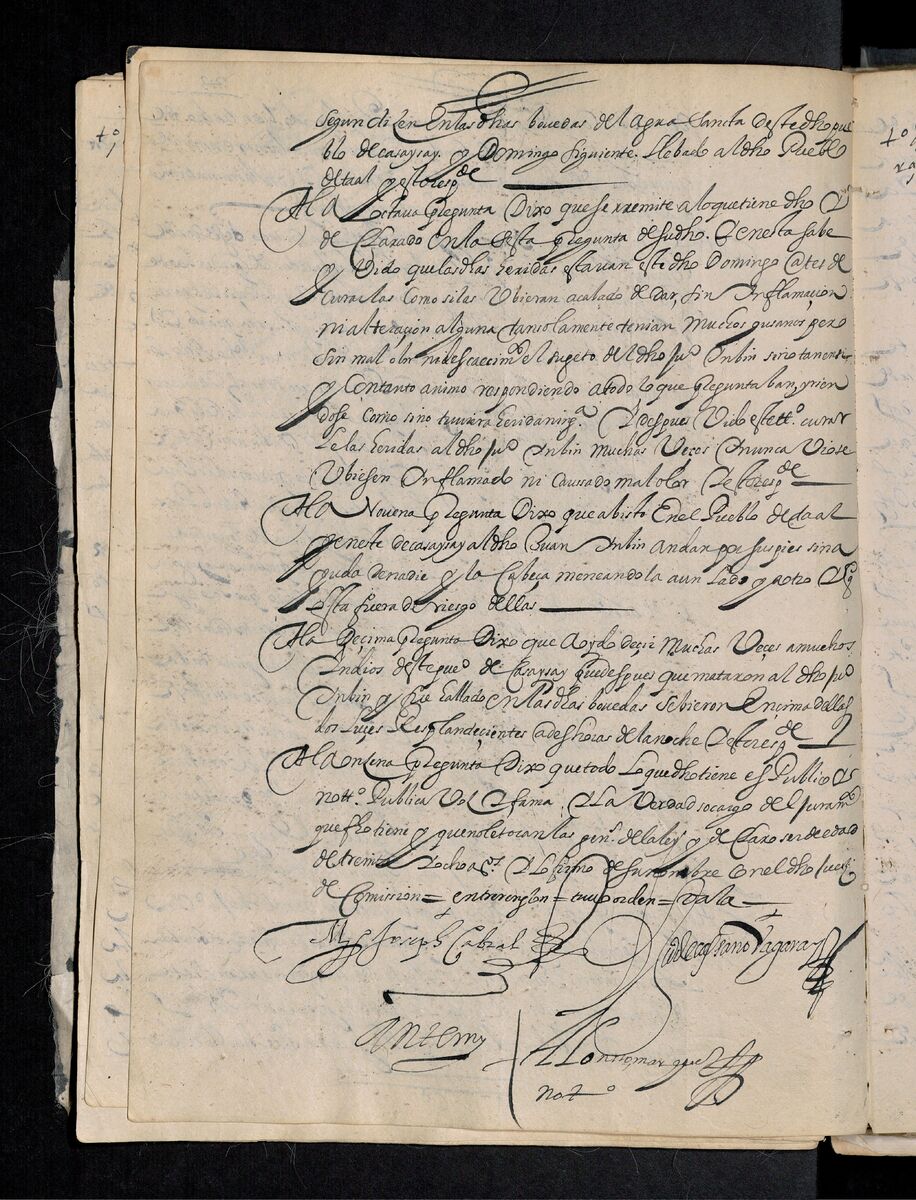 segun dizen en las dhas bouedas del agua sancta deste dho pue
blo de casaysay. y Domingo siguiente. llebado al dho Pueblo
de taal y esto respde
A la octaua Pregunta Dixo que se rremite a lo que tiene dho y
de clarado en la sesta Pregunta de su dho. y en esta sabe
y Vido que las dhas heridas estauan este dho Domingo antes de
curarlas como si las Vbieran acabado de dar, sin Inflamaçion
ni alteraçion alguna tan solamente tenian muchos gusanos pero
sin mal olor ni descaecimto el sugeto del dho Juo Inbin sino tan en si
y con tanto animo respondiendo a todo lo que Preguntaban, y rien
dose como si no tuuiera herida ninga. y despues Vido este tto. curar
le las heridas al dho Juo Inbin muchas Veçes y nunca Vio se
Vbiesen Inflamado ni caussado mal olor y esto respde
A la Novena Pregunta Dixo que a bisto en el Pueblo de taal
y en este de casaysay al dho Juan Inbin andar por sus pies sin a
yuda de nadie y la cabeça meneandola a un lado y a otro y
esta fuera de riesgo dellas
A la Deçima Pregunta Dixo que a oydo deçir muchas Veçes a muchos
Indios deste pueo de Casaysay que despues que mataron al dho Juo
Inbin y fue hallado en las dhas bouedas se bieron Ençima dellas
dos luçes Resplandecientes a deshoras de la noche y esto respde
A la onzena Pregunta Dixo que todo lo que dho tiene es Publico y
notto. Publica Voz y fama. y la Verdad so cargo del juramto
que fho tiene y que no le tocan las genes. de la ley y de claro ser de edad
de treinta y ocho as. y lo firmo de su nombre con el dho juez
de Comission = entre renglon = tuuo orden = Vala
M Joseph Cabral
Ante my
not o